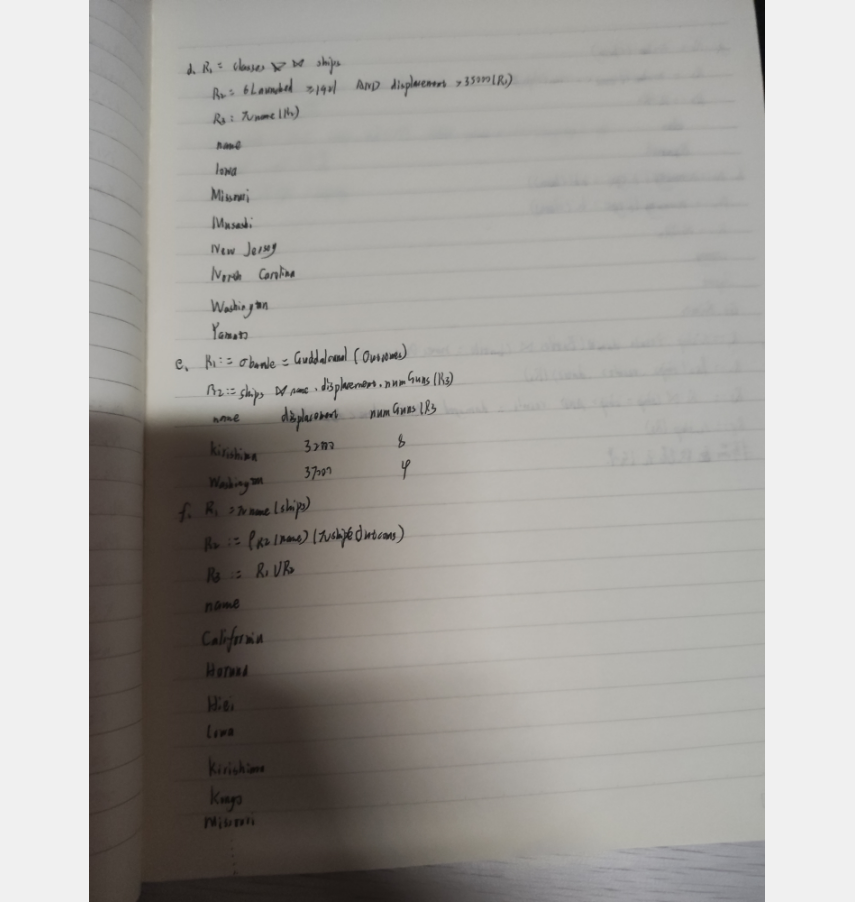 d. R1 = classes ⋈ ships
R2 = σ Launched ≥1921 AND displacement >35000(R1)
R3 = π name (R2)
name
Iowa
Missouri
Musashi
New Jersey
North Carolina
Washington
Yamato
e. R1 := σ = Guadalcanal (Outcomes)
R2 := ships ⋈ name, displacement, numGuns (R3)
name displacement numGuns (R3
Kirishima 32000 8
Washington 37000 9
f. R1 = π name (ships)
R2 := ρ R2(name) (π ship Outcomes)
R3 := R1 ∪ R2
name
California
Haruna
Hiei
Iowa
Kirishima
Kongo
Missouri